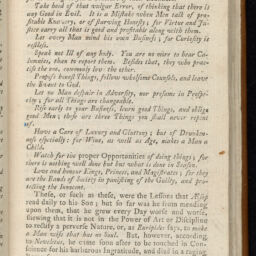 Take heed of that vulgar Error, of thinking that there is
any Good in Evil. It is a Mistake when Men talk of pro-
fitable Knavery, or of starving Honesty; for Virtue and Ju-
stice carry all that is good and profitable along with them.
Let every Man mind his own Business; for Curiosity is
restless.
Speak not Ill of any body. You are no more to hear Ca-
lumnies, then to report them. Besides that, they who prac-
tise the one, commonly love the other.
Propose honest Things, follow wholsome Counsels, and leave
the Event to God.
Let no Man despair in Adversity, nor presume in Prospe-
rity; for all Things are changeable.
Rise early to your Business, learn good Things, and oblige
good Men; these are three Things you shall never repent
of.
Have a Care of Luxury and Gluttony; but of Drunken-
ness especially: for Wine, as well as Age, makes a Man a
Child.
Watch for the proper Opportunities of doing things; for
there is nothing well done but what is done in Season.
Love and honour Kings, Princes, and Magistrates; for they
are the Bands of Society in punishing of the Guilty, and pro-
tecting the Innocent.
These, or such as these, were the Lessons that Æsop
read daily to his Son; but so far was he from mending
upon them, that he grew every Day worse and worse,
shewing that it is not in the Power of Art or Discipline
to rectify a perverse Nature, or, as Euripides says, to make
a Man wise that has no Soul. But, however, according
to Neveletus, he came soon after to be touched in Con-
science for his barbarous Ingratitude, and died in a raging